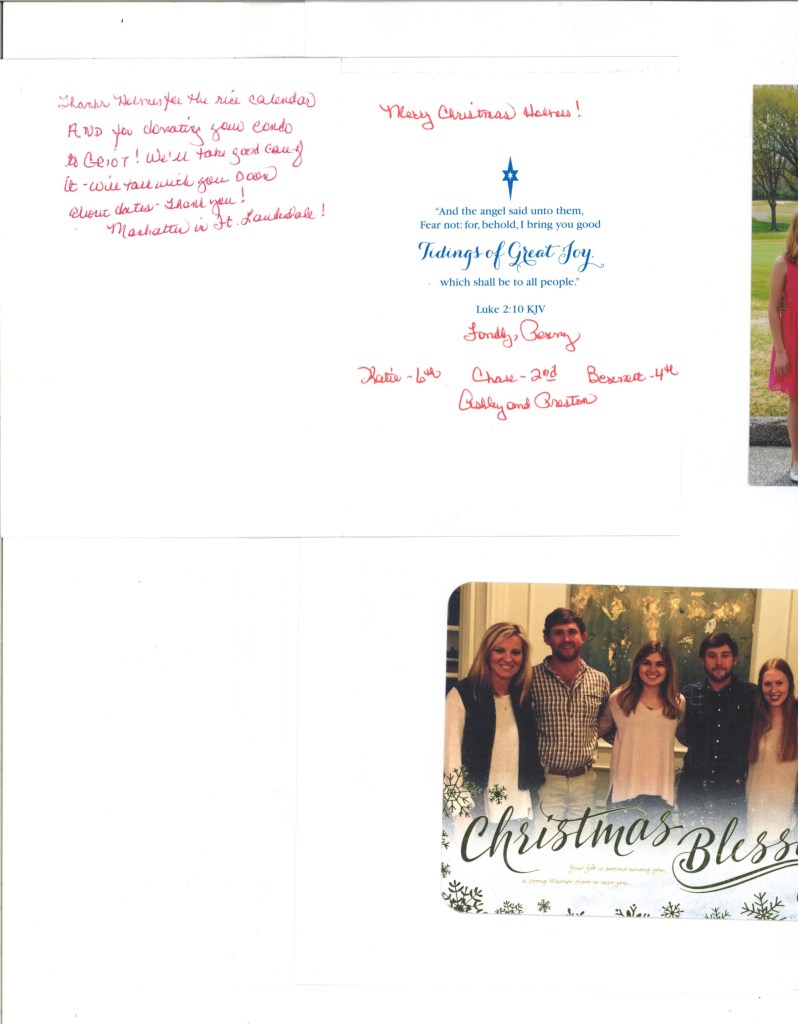 Thanks Holmes for the nice calendar
AND for donating your condo
to GRIOT! We'll take good care of
it - will talk with you soon
about dates - Thank you!
Manhattan in Ft. Lauderdale!
Merry Christmas Holmes!
"And the angel said unto them,
Fear not: for, behold, I bring you good
Tidings of Great Joy,
which shall be to all people."
Luke 2:10 KJV
Fondly, Penny
Katie - 6th Chase - 2nd Bennett - 4th
Ashley and Preston
Christmas Bless
Your God is present among you,
a strong Warrior there to save you...